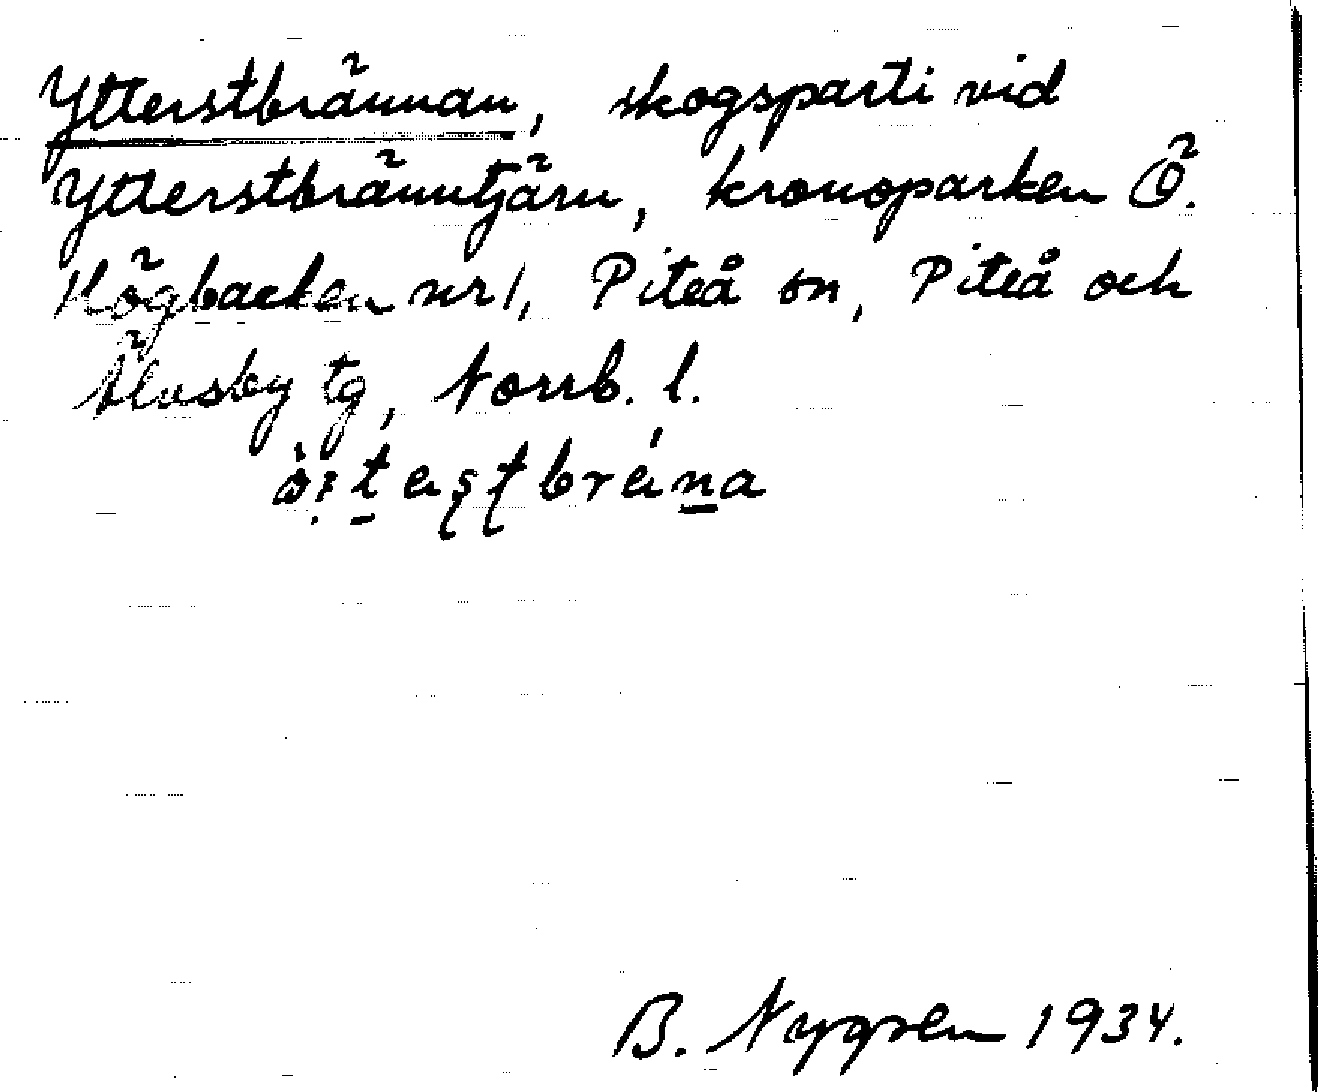 Ytterstbrännan, skogsparti vid
Ytterstbränntjärn, kronoparken Ö.
Högbacken nr 1, Piteå sn, Piteå och
Älvsby tg, Norrb. l.
B. Nygren 1934.